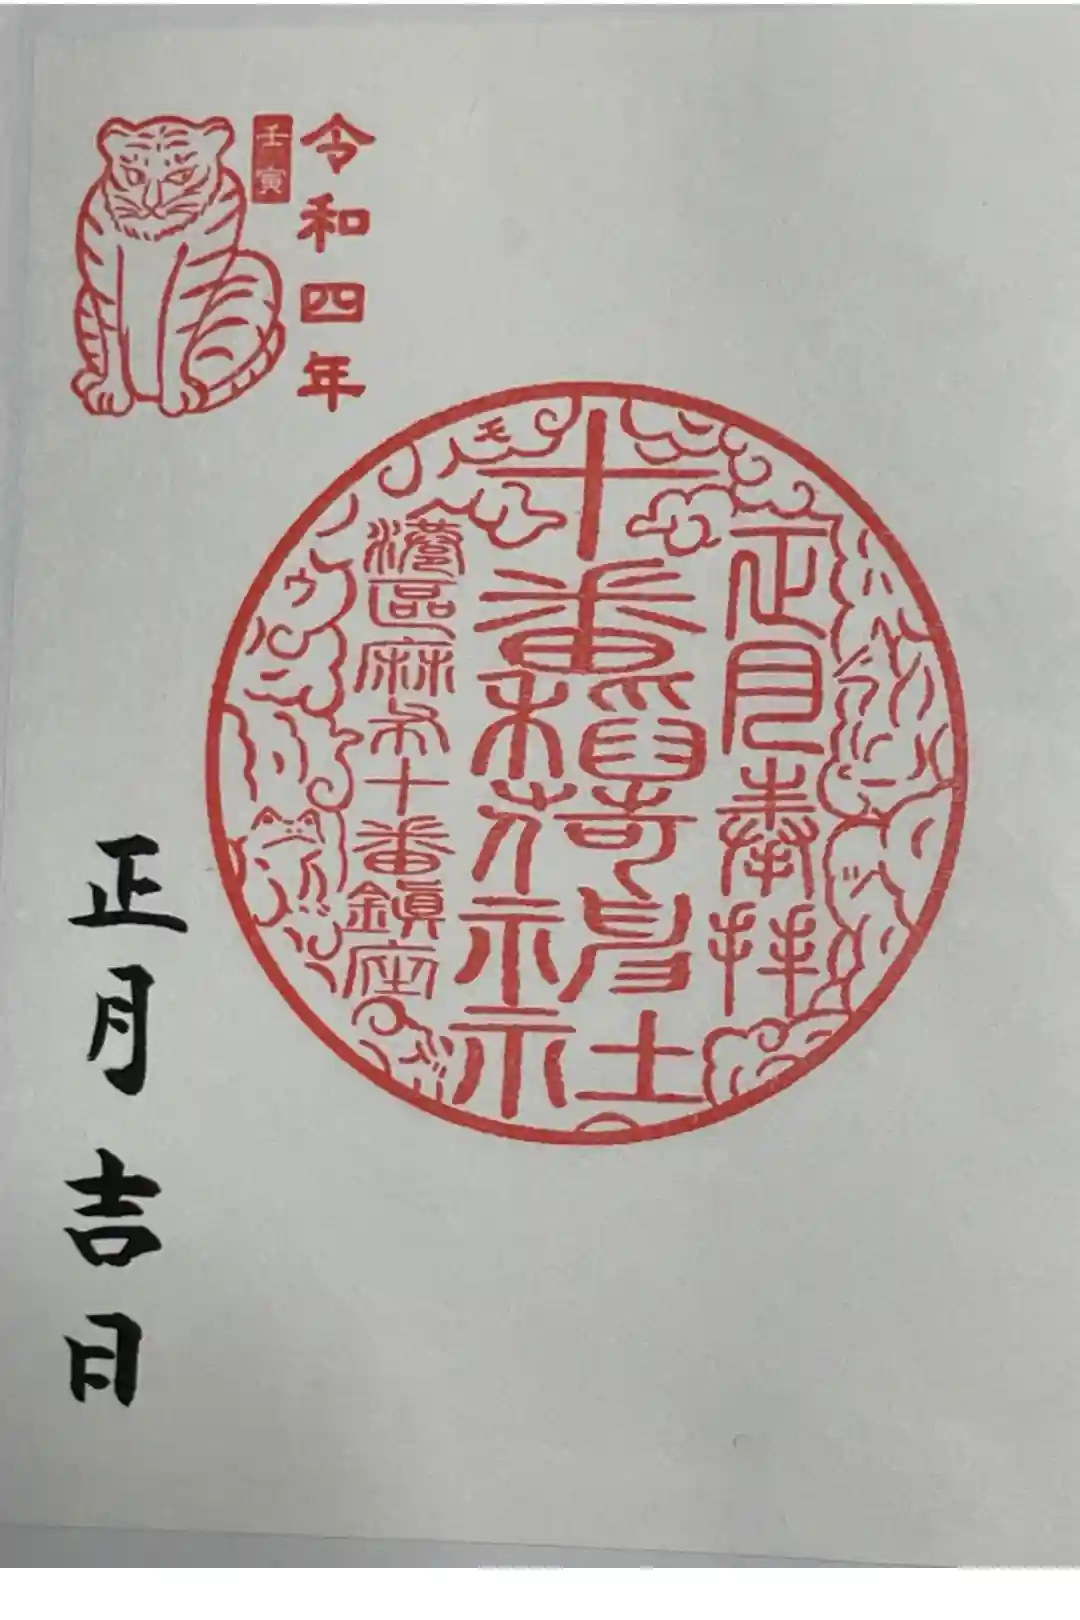 令和四年
壬寅
正月奉拝
十番稲荷神社
港區麻布十番鎮座
正月吉日